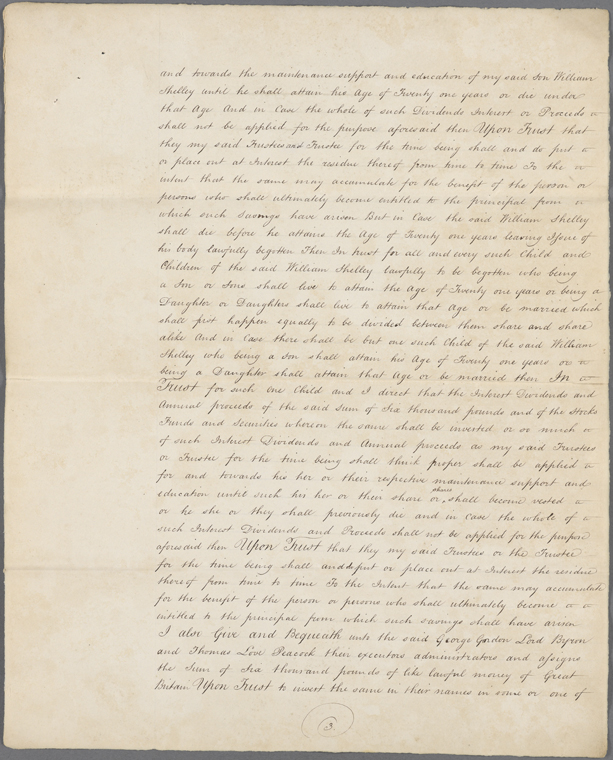 and towards the maintenance support and education of my said Son William
Shelley until he shall attain his Age of Twenty one years or die under
that Age And in Case the whole of such Dividends Interest or Proceeds
shall not be applied for the purpose aforesaid then Upon Trust that
they my said Trustees and Trustee for the time being shall and do put
or place out at Interest the residue thereof from time to time To the
intent that the same may accumulate for the benefit of the person or
persons who shall ultimately become entitled to the principal from
which such savings have arisen But in Case the said William Shelley
shall die before he attains the Age of Twenty one years leaving Issue of
his body lawfully begotten Then In trust for all and every such Child and
Children of the said William Shelley lawfully to be begotten who being
a Son or Sons shall live to attain the Age of Twenty one years or being a
Daughter or Daughters shall live to attain that Age or be married which
shall first happen equally to be divided between them share and share
alike And in Case there shall be but one such Child of the said William
Shelley who being a Son shall attain his Age of Twenty one years or
being a Daughter shall attain that Age or be married then In
Trust for such one Child and I direct that the Interest Dividends and
Annual proceeds of the said Sum of Six thousand pounds and of the Stocks
Funds and Securities whereon the same shall be invested or so much
of such Interest Dividends and Annual proceeds as my said Trustees
or Trustee for the time being shall think proper shall be applied
for and towards his her or their respective maintenance support and
education until such his her or their share or shares shall become vested
or he she or they shall previously die and in case the whole of
such Interest Dividends and Proceeds shall not be applied for the purpose
aforesaid then Upon Trust that they my said Trustees or the Trustee
for the time being shall and do put or place out at Interest the residue
thereof from time to time To the Intent that the same may accumulate
for the benefit of the person or persons who shall ultimately become
intitled to the principal from which such savings shall have arisen
I also Give and Bequeath unto the said George Gordon Lord Byron
and Thomas Love Peacock their executors administrators and assigns
the Sum of Six thousand pounds of like lawful money of Great
Britain Upon Trust to invest the same in their names in some or one of
3